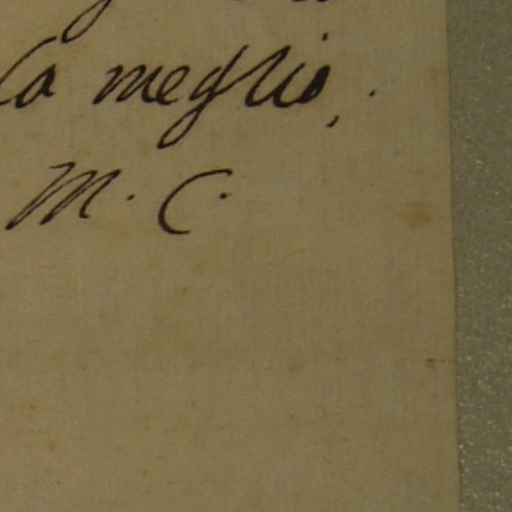 la meglio.
M. C.